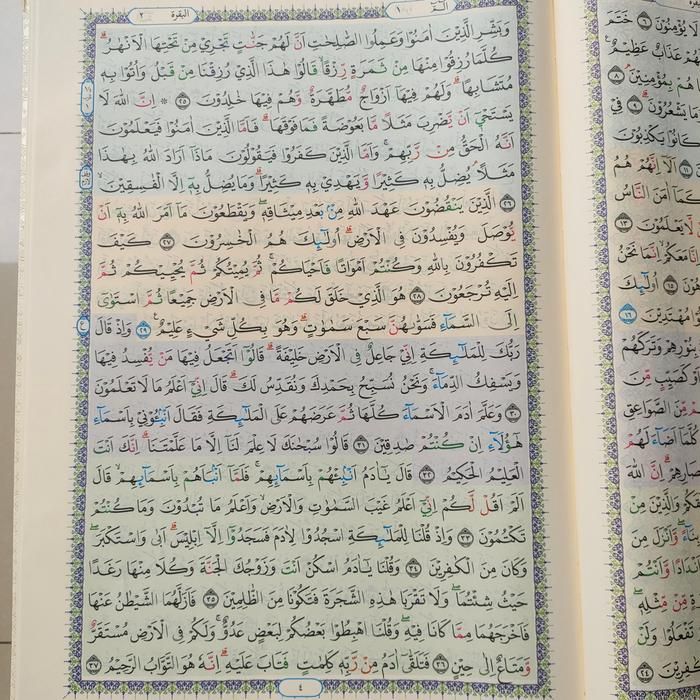 الٓمٓ ١
البقرة ٢
وَبَشِّرِ الَّذِينَ اٰمَنُوا وَعَمِلُوا الصّٰلِحٰتِ اَنَّ لَهُمْ جَنّٰتٍ تَجْرِيْ مِنْ تَحْتِهَا الْاَنْهٰرُ ۗ
كُلَّمَا رُزِقُوْا مِنْهَا مِنْ ثَمَرَةٍ رِّزْقًا ۙ قَالُوْا هٰذَا الَّذِيْ رُزِقْنَا مِنْ قَبْلُ وَاُتُوْا بِهٖ
مُتَشَابِهًا ۗ وَلَهُمْ فِيْهَآ اَزْوَاجٌ مُّطَهَّرَةٌ وَّهُمْ فِيْهَا خٰلِدُوْنَ ٢٥ ۞ اِنَّ اللّٰهَ لَا
يَسْتَحْيٖٓ اَنْ يَّضْرِبَ مَثَلًا مَّا بَعُوْضَةً فَمَا فَوْقَهَا ۗ فَاَمَّا الَّذِيْنَ اٰمَنُوْا فَيَعْلَمُوْنَ
اَنَّهُ الْحَقُّ مِنْ رَّبِّهِمْ ۚ وَاَمَّا الَّذِيْنَ كَفَرُوْا فَيَقُوْلُوْنَ مَاذَآ اَرَادَ اللّٰهُ بِهٰذَا
مَثَلًا ۘ يُضِلُّ بِهٖ كَثِيْرًا وَّيَهْدِيْ بِهٖ كَثِيْرًا ۗ وَمَا يُضِلُّ بِهٖٓ اِلَّا الْفٰسِقِيْنَ ۙ
٢٦ الَّذِيْنَ يَنْقُضُوْنَ عَهْدَ اللّٰهِ مِنْۢ بَعْدِ مِيْثَاقِهٖ ۖ وَيَقْطَعُوْنَ مَآ اَمَرَ اللّٰهُ بِهٖٓ اَنْ
يُّوْصَلَ وَيُفْسِدُوْنَ فِى الْاَرْضِ ۗ اُولٰۤىِٕكَ هُمُ الْخٰسِرُوْنَ ٢٧ كَيْفَ
تَكْفُرُوْنَ بِاللّٰهِ وَكُنْتُمْ اَمْوَاتًا فَاَحْيَاكُمْ ۚ ثُمَّ يُمِيْتُكُمْ ثُمَّ يُحْيِيْكُمْ ثُمَّ
اِلَيْهِ تُرْجَعُوْنَ ٢٨ هُوَ الَّذِيْ خَلَقَ لَكُمْ مَّا فِى الْاَرْضِ جَمِيْعًا ثُمَّ اسْتَوٰٓى
اِلَى السَّمَاۤءِ فَسَوّٰىهُنَّ سَبْعَ سَمٰوٰتٍ ۗ وَهُوَ بِكُلِّ شَيْءٍ عَلِيْمٌ ٢٩ وَاِذْ قَالَ
رَبُّكَ لِلْمَلٰۤىِٕكَةِ اِنِّيْ جَاعِلٌ فِى الْاَرْضِ خَلِيْفَةً ۗ قَالُوْٓا اَتَجْعَلُ فِيْهَا مَنْ يُّفْسِدُ فِيْهَا
وَيَسْفِكُ الدِّمَاۤءَ ۚ وَنَحْنُ نُسَبِّحُ بِحَمْدِكَ وَنُقَدِّسُ لَكَ ۗ قَالَ اِنِّيْٓ اَعْلَمُ مَا لَا تَعْلَمُوْنَ
٣٠ وَعَلَّمَ اٰدَمَ الْاَسْمَاۤءَ كُلَّهَا ثُمَّ عَرَضَهُمْ عَلَى الْمَلٰۤىِٕكَةِ فَقَالَ اَنْۢبِـُٔوْنِيْ بِاَسْمَاۤءِ
هٰٓؤُلَاۤءِ اِنْ كُنْتُمْ صٰدِقِيْنَ ٣١ قَالُوْا سُبْحٰنَكَ لَا عِلْمَ لَنَآ اِلَّا مَا عَلَّمْتَنَا ۗ اِنَّكَ اَنْتَ
الْعَلِيْمُ الْحَكِيْمُ ٣٢ قَالَ يٰٓاٰدَمُ اَنْۢبِئْهُمْ بِاَسْمَاۤىِٕهِمْ ۚ فَلَمَّآ اَنْۢبَاَهُمْ بِاَسْمَاۤىِٕهِمْ ۙ قَالَ
اَلَمْ اَقُلْ لَّكُمْ اِنِّيْٓ اَعْلَمُ غَيْبَ السَّمٰوٰتِ وَالْاَرْضِ ۙ وَاَعْلَمُ مَا تُبْدُوْنَ وَمَا كُنْتُمْ
تَكْتُمُوْنَ ٣٣ وَاِذْ قُلْنَا لِلْمَلٰۤىِٕكَةِ اسْجُدُوْا لِاٰدَمَ فَسَجَدُوْٓا اِلَّآ اِبْلِيْسَ ۗ اَبٰى وَاسْتَكْبَرَ ۖ
وَكَانَ مِنَ الْكٰفِرِيْنَ ٣٤ وَقُلْنَا يٰٓاٰدَمُ اسْكُنْ اَنْتَ وَزَوْجُكَ الْجَنَّةَ وَكُلَا مِنْهَا رَغَدًا
حَيْثُ شِئْتُمَا ۖ وَلَا تَقْرَبَا هٰذِهِ الشَّجَرَةَ فَتَكُوْنَا مِنَ الظّٰلِمِيْنَ ٣٥ فَاَزَلَّهُمَا الشَّيْطٰنُ عَنْهَا
فَاَخْرَجَهُمَا مِمَّا كَانَا فِيْهِ ۖ وَقُلْنَا اهْبِطُوْا بَعْضُكُمْ لِبَعْضٍ عَدُوٌّ ۚ وَلَكُمْ فِى الْاَرْضِ مُسْتَقَرٌّ
وَّمَتَاعٌ اِلٰى حِيْنٍ ٣٦ فَتَلَقّٰٓى اٰدَمُ مِنْ رَّبِّهٖ كَلِمٰتٍ فَتَابَ عَلَيْهِ ۗ اِنَّهٗ هُوَ التَّوَّابُ الرَّحِيْمُ ٣٧
٤